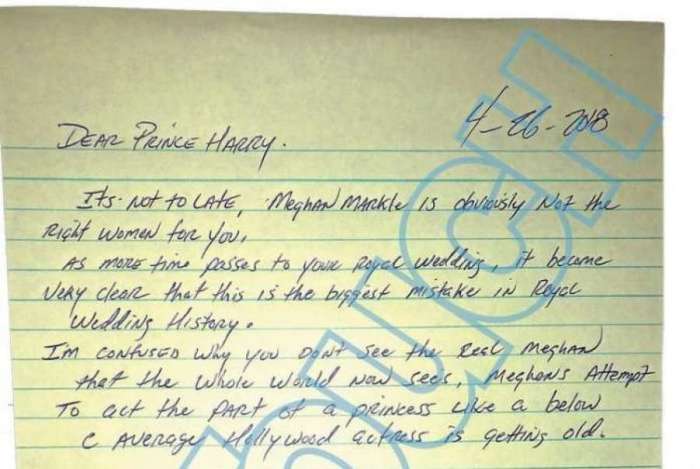 4-26-2018
DEAR PRINCE HARRY.
ITS. NOT TO LATE, MEGHAN MARKLE IS obviously Not the
Right women for you.
AS MORE time passes to your Royal wedding, it became
Very clear that this is the biggest mistake in Royal
Wedding History.
IM CONFUSED Why you DON'T See the Real MegHAN
that the whole world Now sees, Meghans Attempt
To act the PART of a princess like a below
C AVERAge Hollywood actress is getting old.
TOUCH